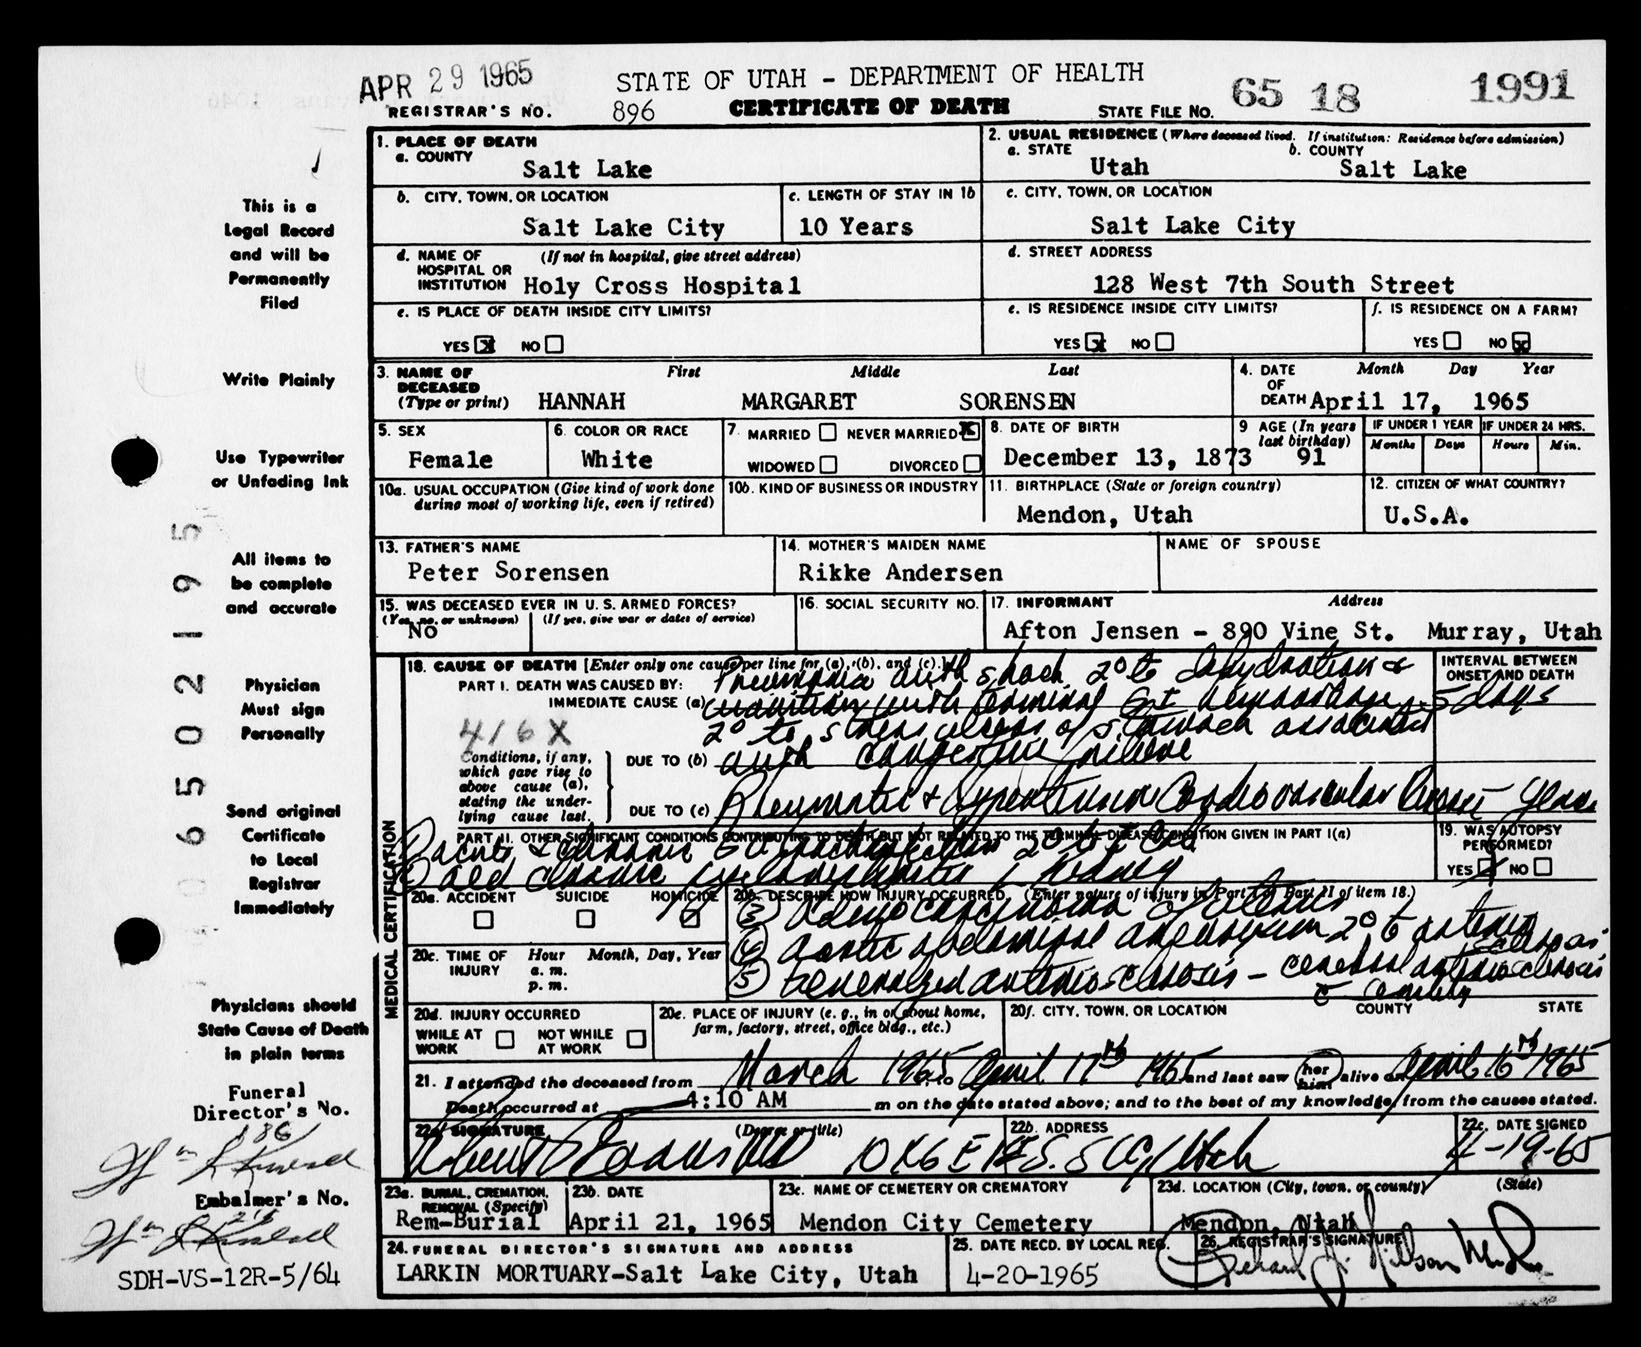 APR 29 1965
STATE OF UTAH - DEPARTMENT OF HEALTH
REGISTRAR'S NO. 896 CERTIFICATE OF DEATH STATE FILE NO. 65 18 1991
This is a
Legal Record
and will be
Permanently
Filed
Write Plainly
Use Typewriter
or Unfading Ink
All items to
be complete
and accurate
Physician
Must sign
Personally
Send original
Certificate
to Local
Registrar
Immediately
Physicians should
State Cause of Death
in plain terms
Funeral
Director's No.
186
Embalmer's No.
SDH-VS-12R-5/64
06502195
1. PLACE OF DEATH
a. COUNTY
Salt Lake
2. USUAL RESIDENCE (Where deceased lived. If institution: Residence before admission)
a. STATE b. COUNTY
Utah Salt Lake
b. CITY, TOWN, OR LOCATION
Salt Lake City
c. LENGTH OF STAY IN 1b
10 Years
c. CITY, TOWN, OR LOCATION
Salt Lake City
d. NAME OF (If not in hospital, give street address)
HOSPITAL OR
INSTITUTION Holy Cross Hospital
d. STREET ADDRESS
128 West 7th South Street
e. IS PLACE OF DEATH INSIDE CITY LIMITS?
YES X NO
e. IS RESIDENCE INSIDE CITY LIMITS?
YES X NO
f. IS RESIDENCE ON A FARM?
YES NO X
3. NAME OF First Middle Last
DECEASED
(Type or print) HANNAH MARGARET SORENSEN
4. DATE Month Day Year
OF
DEATH April 17, 1965
5. SEX
Female
6. COLOR OR RACE
White
7. MARRIED NEVER MARRIED X
WIDOWED DIVORCED
8. DATE OF BIRTH
December 13, 1873
9 AGE (In years
last birthday)
91
IF UNDER 1 YEAR IF UNDER 24 HRS.
Months Days Hours Min.
10a. USUAL OCCUPATION (Give kind of work done
during most of working life, even if retired)
10b. KIND OF BUSINESS OR INDUSTRY
11. BIRTHPLACE (State or foreign country)
Mendon, Utah
12. CITIZEN OF WHAT COUNTRY?
U.S.A.
13. FATHER'S NAME
Peter Sorensen
14. MOTHER'S MAIDEN NAME
Rikke Andersen
NAME OF SPOUSE
15. WAS DECEASED EVER IN U. S. ARMED FORCES?
(Yes, no, or unknown) (If yes, give war or dates of service)
No
16. SOCIAL SECURITY NO.
17. INFORMANT Address
Afton Jensen - 890 Vine St. Murray, Utah
MEDICAL CERTIFICATION
18. CAUSE OF DEATH [Enter only one cause per line for (a), (b), and (c).]
PART I. DEATH WAS CAUSED BY:
Pneumonia with shock 2° to dehydration &
IMMEDIATE CAUSE (a) with terminal G I hemorrhage
INTERVAL BETWEEN
ONSET AND DEATH
5 days
416X
2° to stress ulcers of stomach associated
Conditions, if any,
which gave rise to
above cause (a),
stating the under-
lying cause last.
DUE TO (b) with congestive failure
DUE TO (c) Rheumatic & Hypertensive Cardiovascular Disease years
PART II. OTHER SIGNIFICANT CONDITIONS CONTRIBUTING TO DEATH BUT NOT RELATED TO THE TERMINAL DISEASE CONDITION GIVEN IN PART I(a)
acute & chronic 2° to
chronic kidney
19. WAS AUTOPSY
PERFORMED?
YES X NO
20a. ACCIDENT SUICIDE HOMICIDE
20b. DESCRIBE HOW INJURY OCCURRED. (Enter nature of injury in Part I or Part II of item 18.)
(3) Adenocarcinoma of uterus
(4) aortic abdominal aneurysm 2° to arterio
sclerosis
(5) Generalized arteriosclerosis - cerebral arteriosclerosis
c senility
20c. TIME OF Hour Month, Day, Year
INJURY a. m.
p. m.
20d. INJURY OCCURRED
WHILE AT WORK NOT WHILE AT WORK
20e. PLACE OF INJURY (e. g., in or about home,
farm, factory, street, office bldg., etc.)
20f. CITY, TOWN, OR LOCATION COUNTY STATE
21. I attended the deceased from March 1965 to April 17th 1965 and last saw her him alive on April 16th 1965
Death occurred at 4:10 AM m on the date stated above; and to the best of my knowledge, from the causes stated.
22a. SIGNATURE (Degree or title)
22b. ADDRESS
Utah
22c. DATE SIGNED
4-19-65
23a. BURIAL, CREMATION,
REMOVAL (Specify)
Rem-Burial
23b. DATE
April 21, 1965
23c. NAME OF CEMETERY OR CREMATORY
Mendon City Cemetery
23d. LOCATION (City, town, or county) (State)
Mendon, Utah
24. FUNERAL DIRECTOR'S SIGNATURE AND ADDRESS
LARKIN MORTUARY-Salt Lake City, Utah
25. DATE RECD. BY LOCAL REG.
4-20-1965
26. REGISTRAR'S SIGNATURE